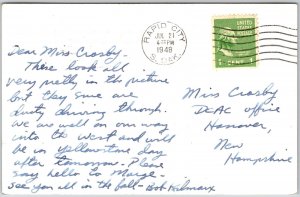 RAPID CITY
JUL 21
4 PM
1949
S. DAK.
UNITED STATES
POSTAGE
1 CENT 1
Dear Miss Crosby
These look all
very pretty in the picture
but they sure are
dusty driving through.
We are well on our way
into the west and will
be in yellowstone day
after tomorrow. Please
say hello to Marge-
see you all in the fall- Bob Hilmarx
Miss Crosby
DCAC office
Hanover,
New
Hampshire